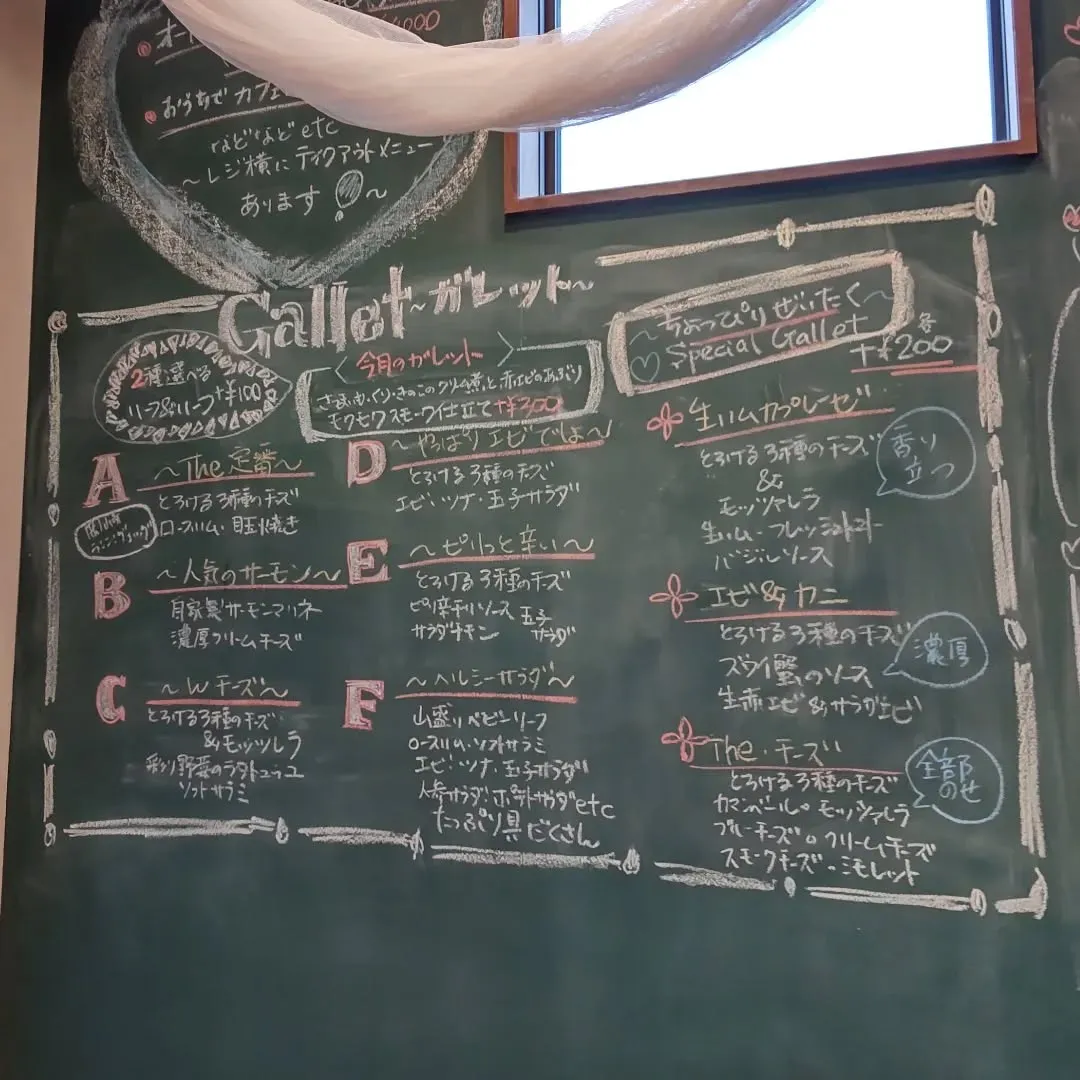 ¥1000
オー
おうちで カフェ
などなど etc
～レジ横に テイクアウトメニュー
あります！～
Gallet～ガレット～
2種選べる
ハーフ&ハーフ +¥100
今月のガレット
さつまいも・くり・きのこのクリーム煮と赤エビのあぶり
モクモクスモーク仕立て +¥300
A ～The定番～
とろける3種のチーズ
ロースハム・目玉焼き
B ～人気のサーモン～
自家製サーモンマリネ
濃厚クリームチーズ
C ～Wチーズ～
とろける3種のチーズ
&モッツレラ
彩り野菜のラタトゥユ
ソフトサラミ
D ～やっぱりエビでしょ～
とろける3種のチーズ
エビ・ツナ・玉子サラダ
E ～ピリっと辛い～
とろける3種のチーズ
ピリ辛チリソース 玉子
サラダチキン サラダ
F ～ヘルシーサラダ～
山盛りベビーリーフ
ロースハム・ソフトサラミ
エビ・ツナ・玉子サラダ
人参サラダ・ポテトサラダetc
たっぷり具だくさん
～ちょっぴりぜいたく～
Special Gallet
各
+¥200
生ハムカプレーゼ
とろける3種のチーズ
&
モッツァレラ
生ハム・フレッシュトマト
バジルソース
香り
立つ
エビ&カニ
とろける3種のチーズ
ズワイ蟹のソース
生赤エビ&サラダエビ
濃厚
The・チーズ
とろける3種のチーズ
カマンベール・モッツァレラ
ブルーチーズ・クリームチーズ
スモークチーズ・ミモレット
全部
のせ